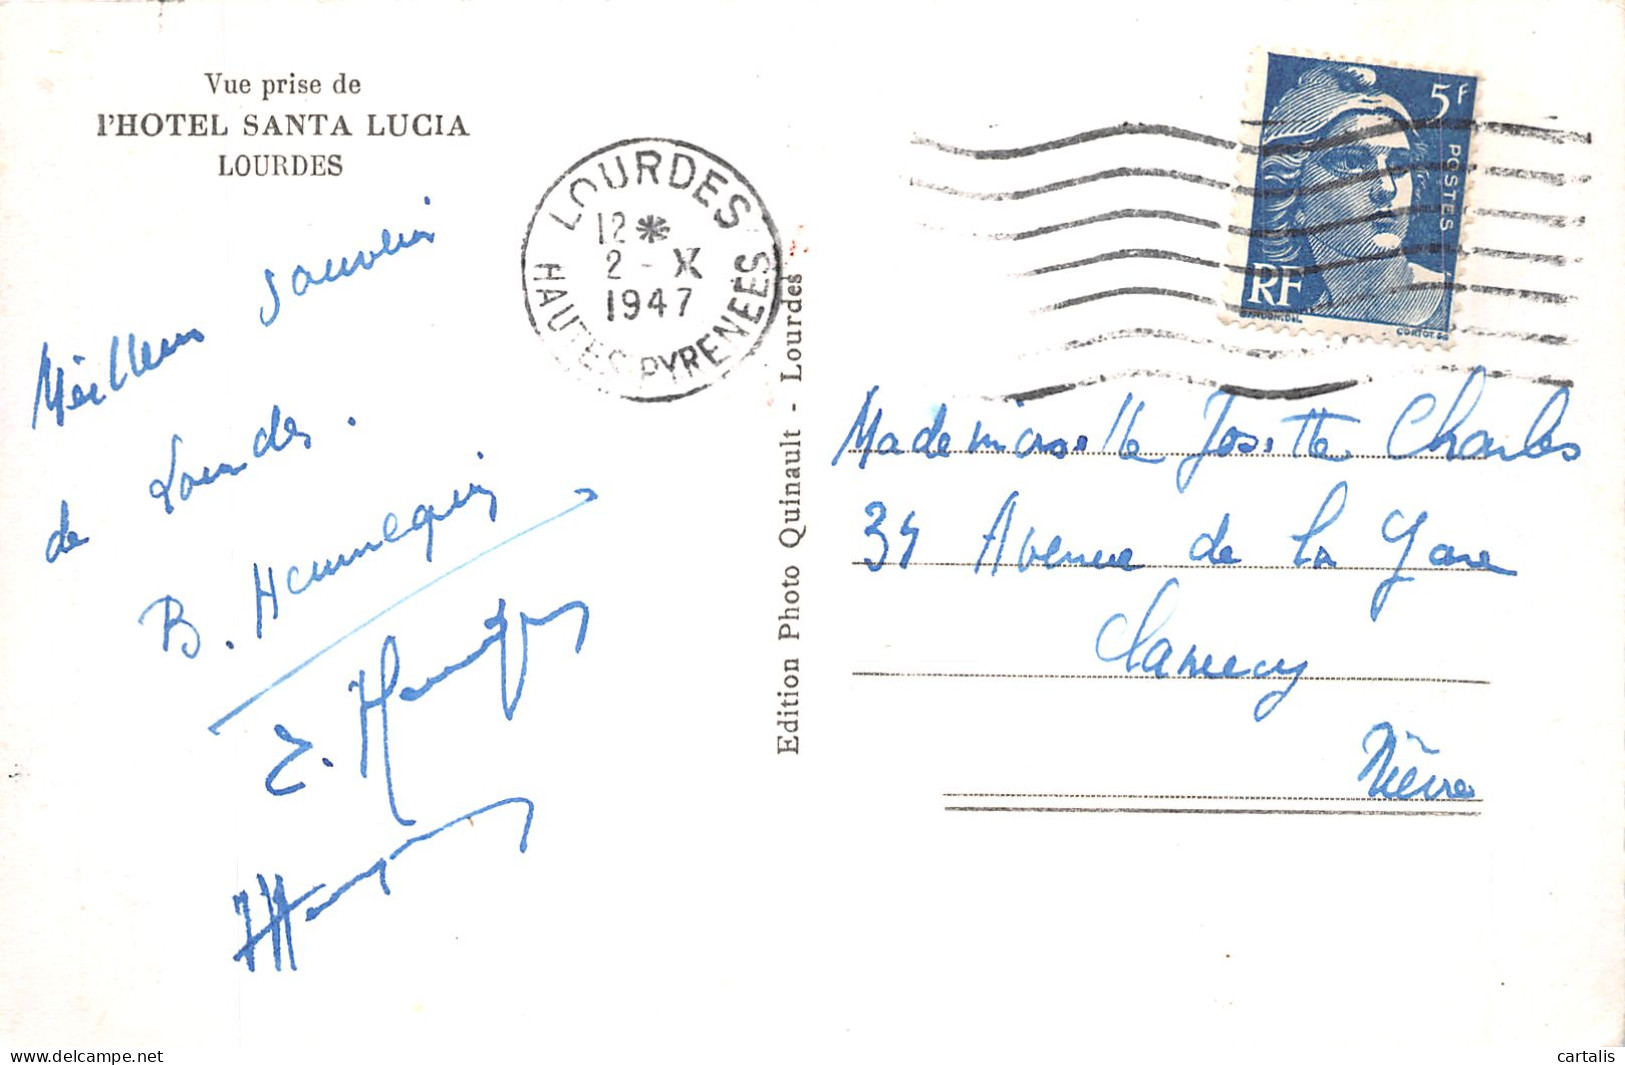 Vue prise de
l'HOTEL SANTA LUCIA
LOURDES
Meilleur souvenir
de Lourdes.
B. Hennequin
LOURDES
12 *
2 - X
1947
HAUTES PYRENEES
Edition Photo Quinault - Lourdes
5F
POSTES
RF
GANDON.DEL.
CORTOT.SC
Mademoiselle Josette Charles
34 Avenue de la Gare
Clamecy
Nièvre
delcampe.net
cartalis